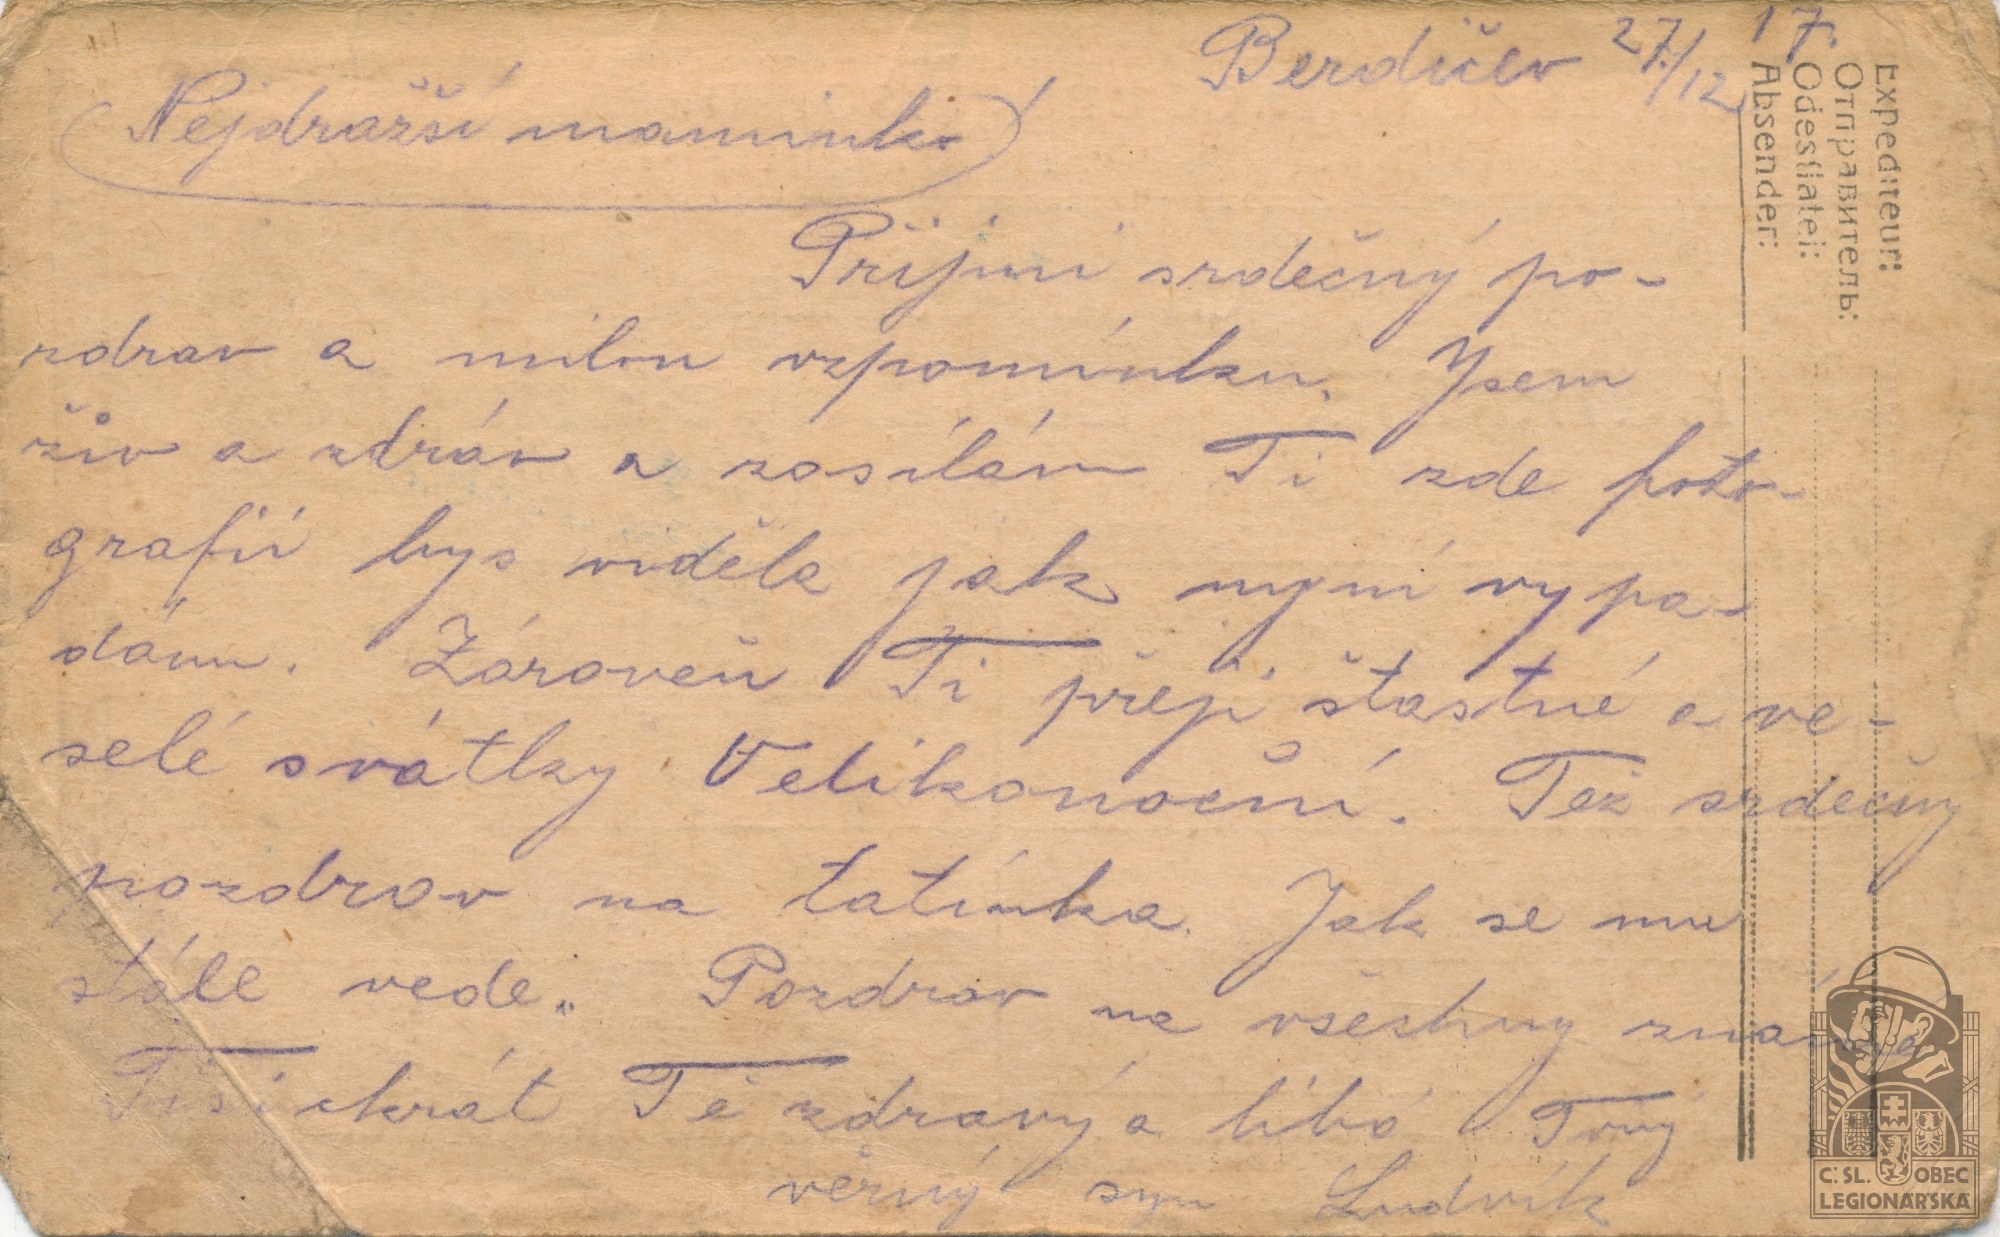 Berdičev 27./12 17.
Nejdražší maminko!
Přijmi srdečný po-
zdrav a milou vzpomínku. Jsem
živ a zdráv a zasílám Ti zde foto-
grafii bys viděla jak nyní vypa-
dám. Zároveň Ti přeji šťastné a ve-
selé svátky Velikonoční. Též srdečný
pozdrav na tatínka. Jak se mu
stále vede. Pozdrav na všechny známé
Tisíckrát Tě zdravý a líbá Tvůj
věrný syn Ludvík
Expediteur:
Отправитель:
Odesílatel:
Absender:
Č. SL. OBEC
LEGIONÁŘSKÁ